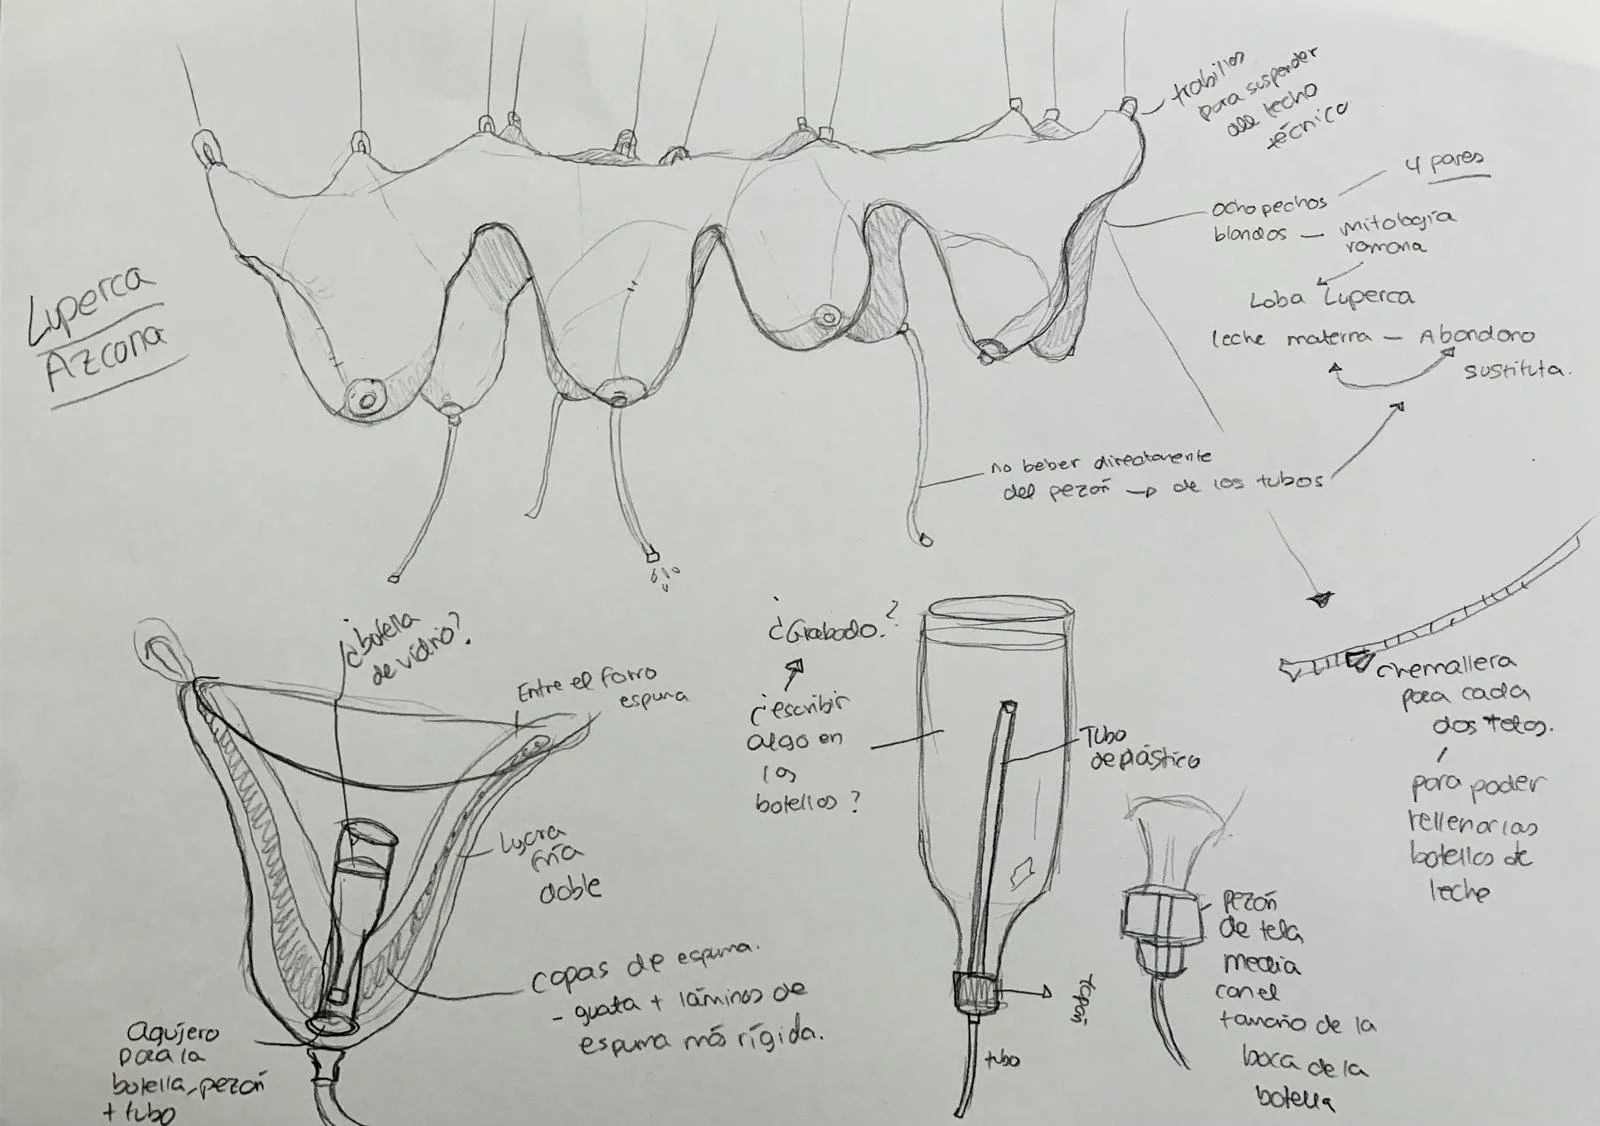 Luperca
Azcona
trabillas
para suspender
del techo
técnico
Ocho pechos
blandos — mitología
romana
4 pares
Loba Luperca
leche materna — Abandono
sustituta.
no beber directamente
del pezón → de los tubos
¿botella
de vidrio?
Entre el forro
espuma
Lycra
fría
doble
copas de espuma.
- guata + láminas de
espuma más rígida.
Agujero
para la
botella, pezón
+ tubo
¿Grabado?
¿escribir
algo en
las
botellas?
Tubo
de plástico
tapón
tubo
cremallera
para cada
dos telas.
para poder
rellenar las
botellas de
leche
pezón
de tela
media
con el
tamaño de la
boca de la
botella